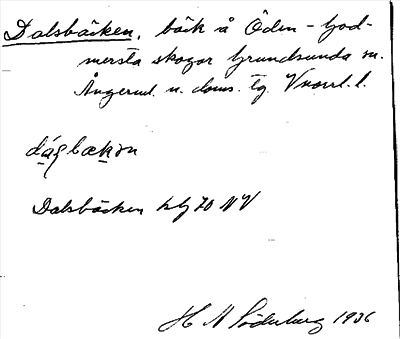 Dalsbäcken, bäck å Öden - God-
mersta skogar Grundsunda sn.
Ångerml. n. doms. tg. Vnorrl. l.
Dalsbäcken blj 70 NV
H N Söderberg 1936